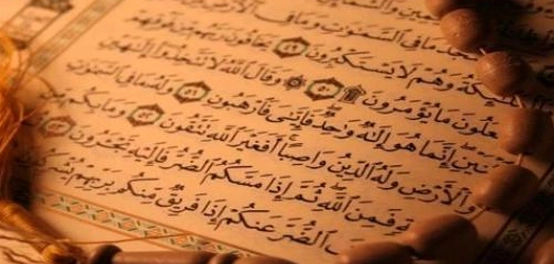 يَسْجُدُ مَا فِي ٱلسَّمَٰوَٰتِ وَمَا فِي
ـئِكَةُ وَهُمْ لَا يَسْتَكْبِرُونَ ٤٩ يَخَافُونَ رَبَّهُم مِّن فَوْقِهِمْ
ـعَلُونَ مَا يُؤْمَرُونَ ۩ ٥٠ ۞ وَقَالَ ٱللَّهُ لَا تَتَّخِذُوٓا۟ إِلَٰهَيْنِ
ـنَيْنِ إِنَّمَا هُوَ إِلَٰهٌ وَٰحِدٌ فَإِيَّٰىَ فَٱرْهَبُونِ ٥١ وَلَهُۥ مَا فِي ٱلسَّمَٰوَٰتِ
وَٱلْأَرْضِ وَلَهُ ٱلدِّينُ وَاصِبًا أَفَغَيْرَ ٱللَّهِ تَتَّقُونَ ٥٢ وَمَا بِكُم مِّن
ـةٍ فَمِنَ ٱللَّهِ ثُمَّ إِذَا مَسَّكُمُ ٱلضُّرُّ فَإِلَيْهِ تَجْـَٔرُونَ ٥٣
ـفَ ٱلضُّرَّ عَنكُمْ إِذَا فَرِيقٌ مِّنكُم بِرَبِّهِمْ يُشْرِكُونَ